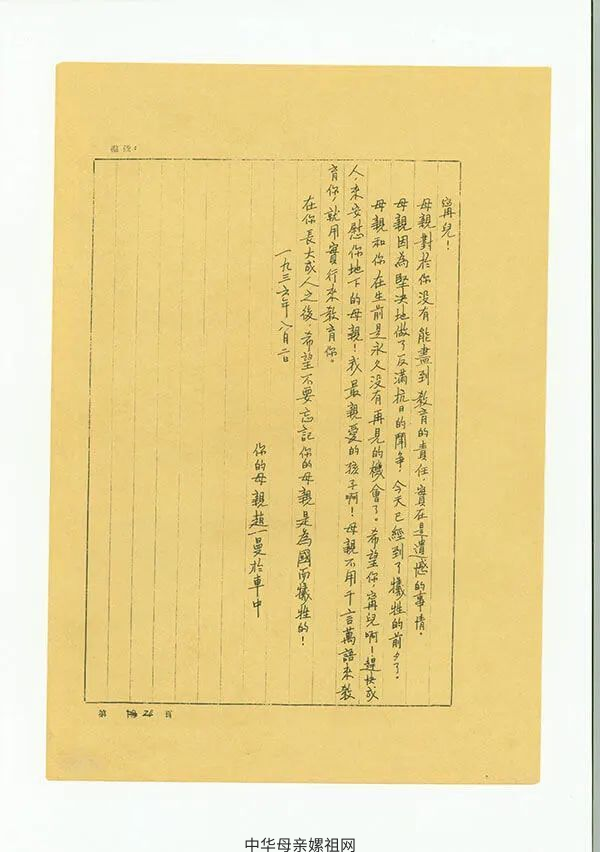 甯兒！
母親對於你没有能盡到教育的責任，實在是遺憾的事情。
母親因為堅决地做了反滿抗日的鬥争，今天已經到了犧牲的前夕了。
母親和你在生前是永久没有再見的機會了。希望你，甯兒啊！趕快成
人，来安慰你地下的母親！我最親愛的孩子啊！母親不用千言萬語来教
育你，就用實行来教育你。
在你長大成人之後，希望不要忘記你的母親是為國而犧牲的！
一九三六年八月二日
你的母親趙一曼於車中
第 頁
中华母亲嫘祖网